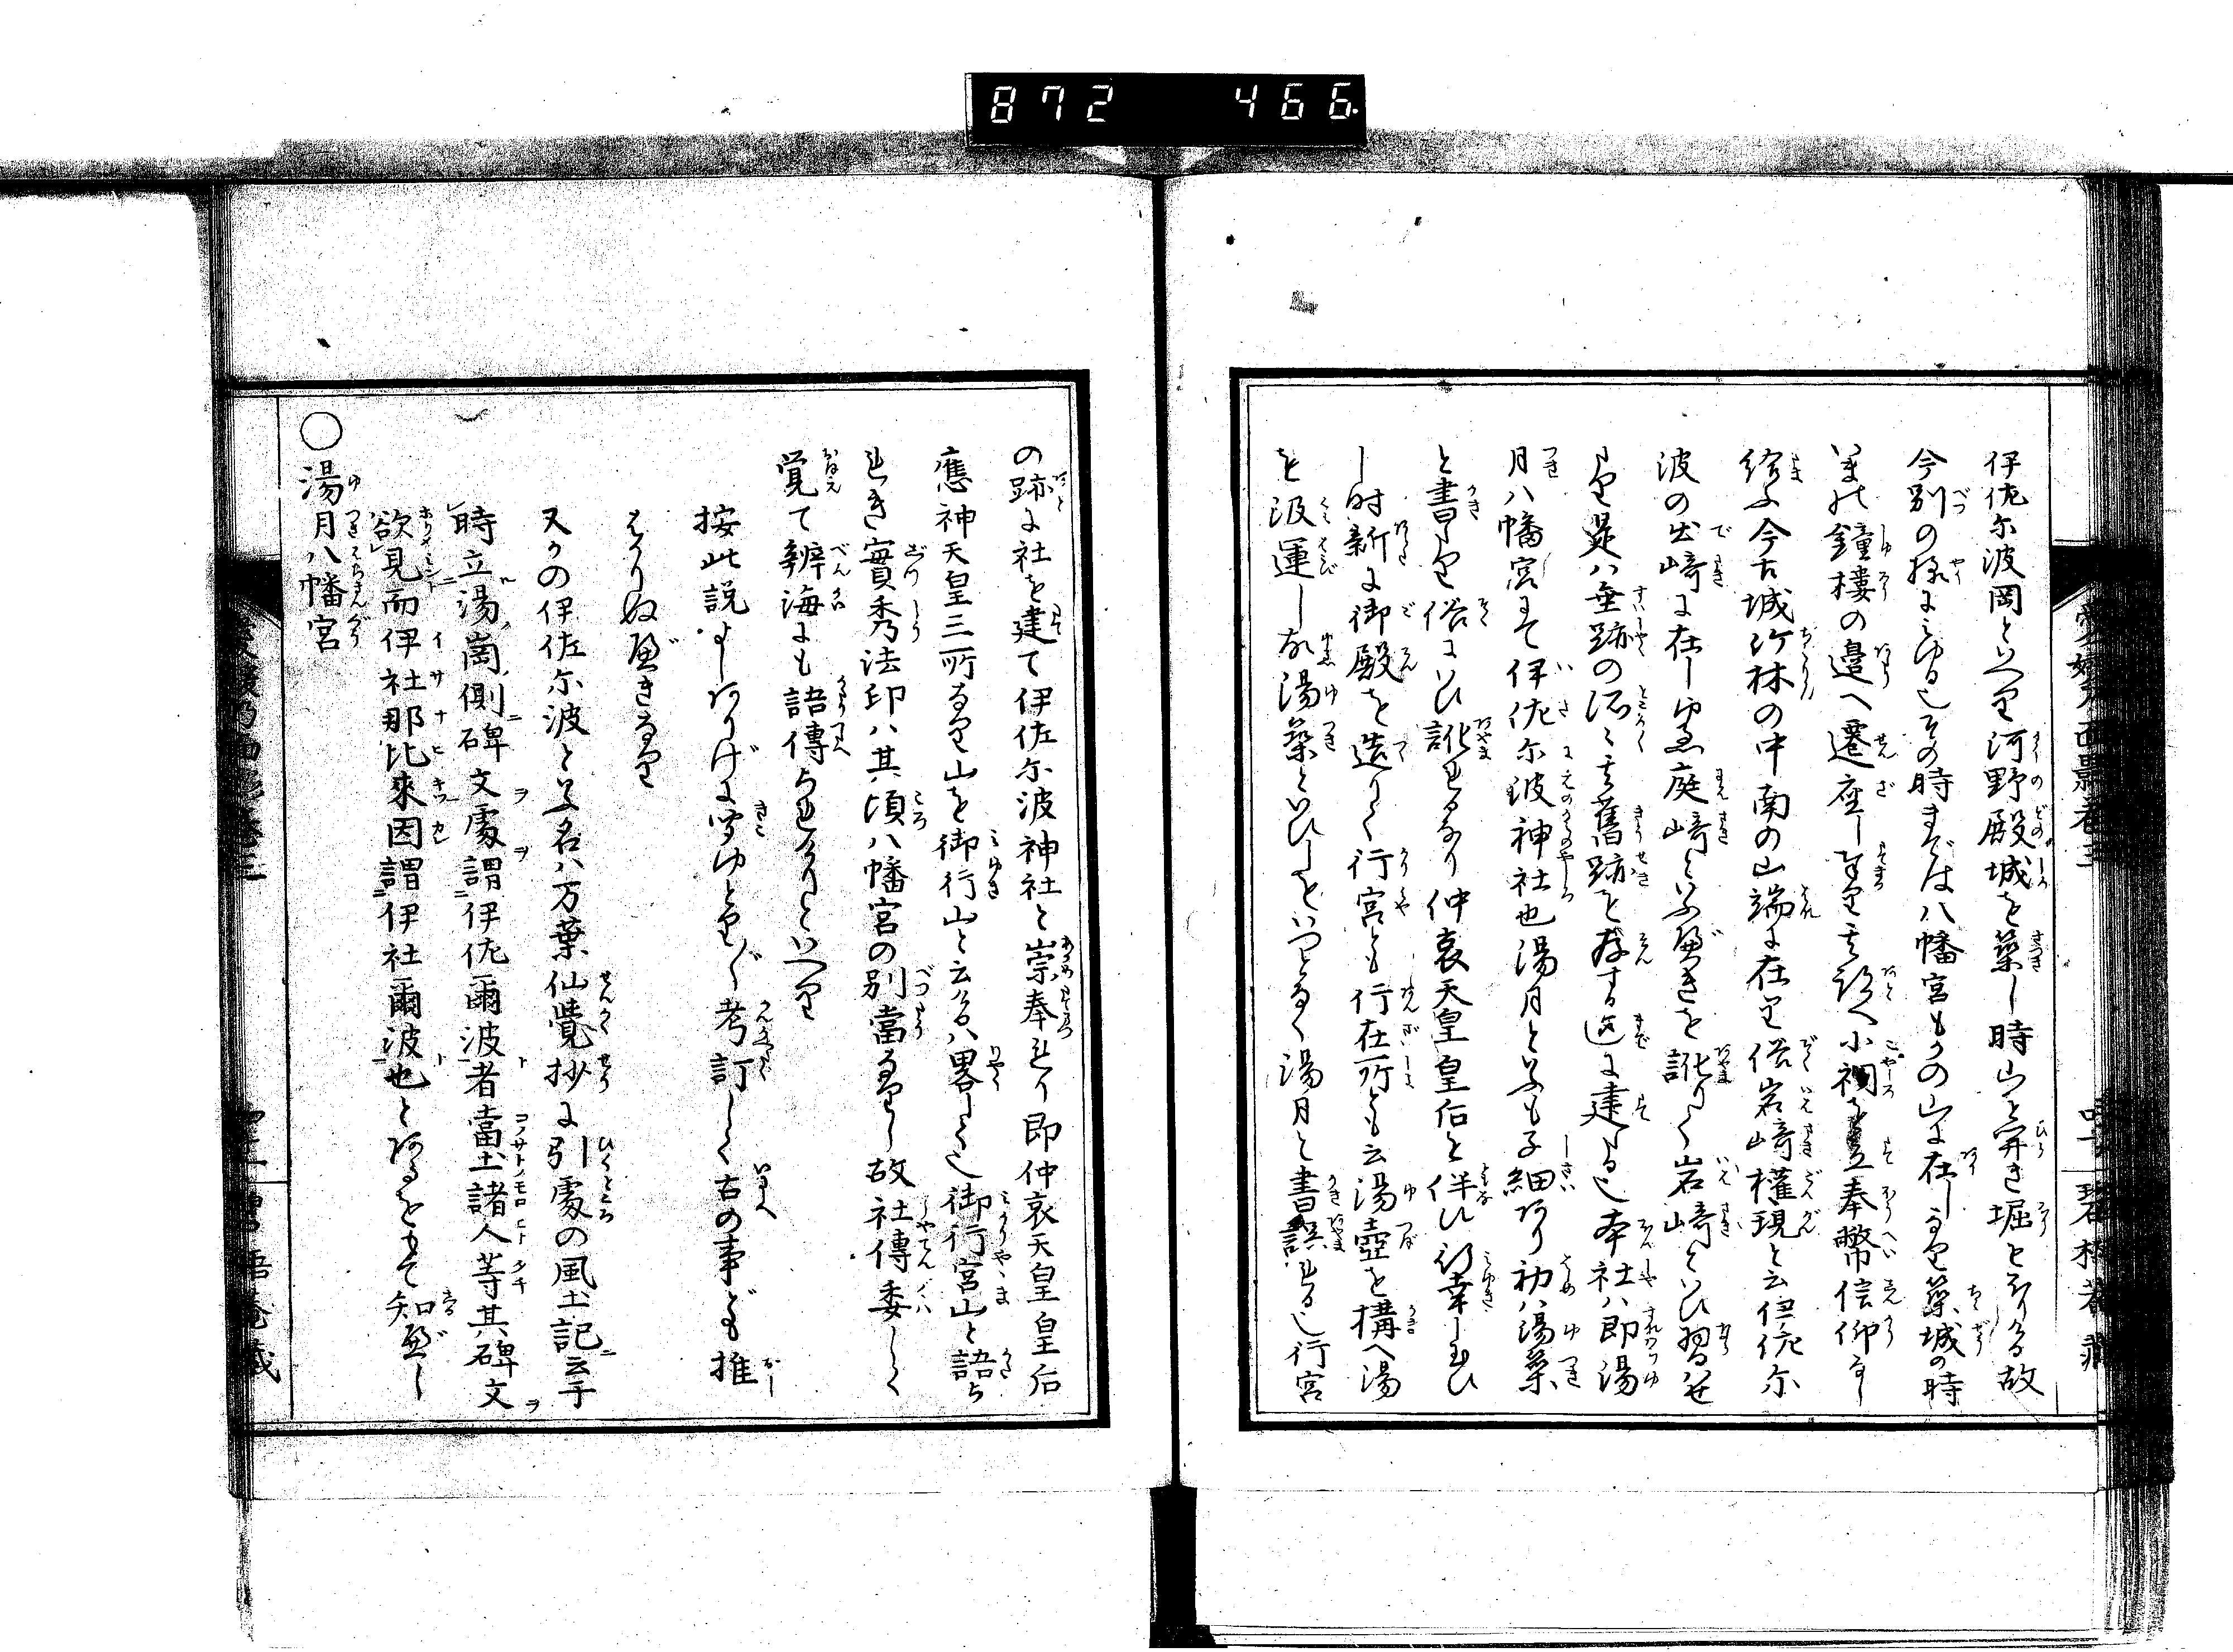 872 466
伊佐尓波岡といへり河野殿城を築し時山を開き堀をほりける故
今別の様にみゆる也その時までは八幡宮もかの山に在しなり築城の時
いまの鐘樓の邉へ遷座し奉り其跡へ小祠を立奉幣信仰なし
給ふ今古城竹林の中南の山端に在り俗岩﨑権現と云伊佐尓
波の出﨑に在しゆゑ庭﨑といふべきを訛りて岩﨑といひ習はせ
り是ハ垂跡の所く其舊跡を存する迠に建たる也本社ハ即湯
月八幡宮にて伊佐尓波神社也湯月といふも子細あり初ハ湯築
と書り俗にいひ訛れるなり仲哀天皇皇后を伴ひ行幸し玉ひ
し時新に御殿を造りて行宮とも行在所とも云湯壺を構へ湯
を汲運しな湯築といひしをいつとなく湯月と書誤れる也行宮
の跡に社を建て伊佐尓波神社と崇奉れり即仲哀天皇皇后
應神天皇三所なり山を御行山と云けるハ畧したる也御行宮山と語ち
れき實秀法印ハ其頃八幡宮の別當なりし故社傳委しく
覚て辨海にも語傳られけりといへり
按此説よしありげに聞ゆとりべく考訂して古の事ども推
はかりぬべきなり
又かの伊佐尓波といふ名ハ万葉仙覺抄に引處の風土記云于
時立湯崗側碑文處謂伊佐爾波者當土諸人等其碑文
欲見而伊社那比來因謂伊社爾波也とあるをもて知べし
○湯月八幡宮